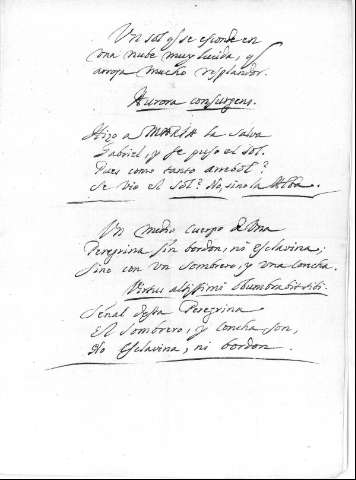 Vn sol q̃ se esconde en
vna nube muy lucida, y
arroja mucho resplandor.
Aurora consurgens.
Hizo a MARIA la salva
Gabriel, y se puso el sol.
Pues como tanto arrebol?
Se vio el sol? No, sino la Alba.
Vn medio cuerpo de vna
Peregrina sin bordon, ni esclavina,
Sino con vn sombrero, y vna concha.
Virtus altissimi obumbrabit tibi.
Señal desta Peregrina
El sombrero, y concha son,
No Esclavina, ni bordon.